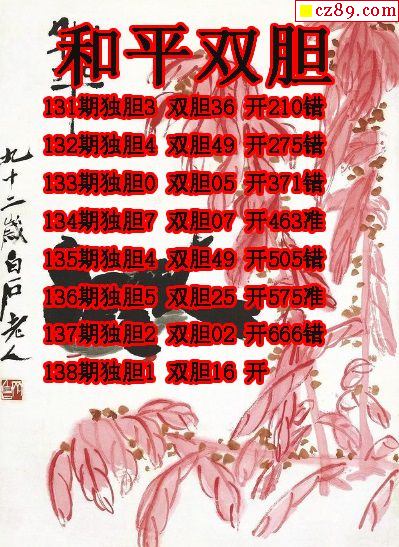 cz89.com
和平双胆
131期独胆3 双胆36 开210错
132期独胆4 双胆49 开275错
133期独胆0 双胆05 开371错
134期独胆7 双胆07 开463准
135期独胆4 双胆49 开505错
136期独胆5 双胆25 开575准
137期独胆2 双胆02 开666错
138期独胆1 双胆16 开
九十二岁白石老人